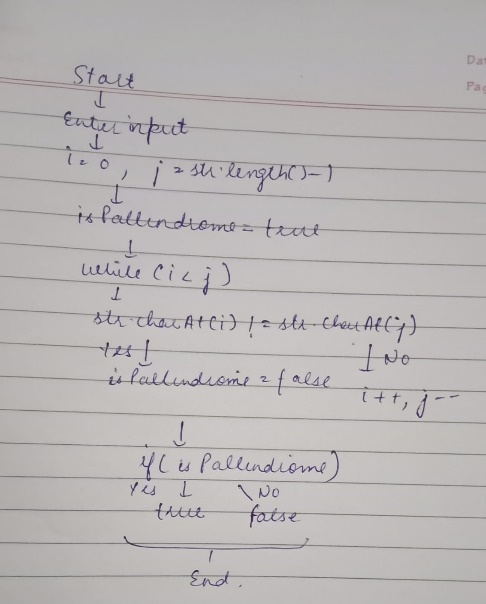 Dat
Pag
Start
Enter input
i = 0, j = str.length()-1
isPallindrome = true
while (i < j)
str.charAt(i) != str.charAt(j)
Yes NO
isPallindrome = false i++, j--
if (isPallindrome)
Yes NO
true false
End.